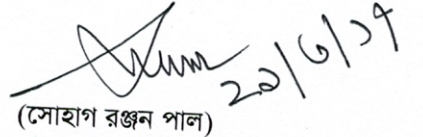 ২৯/৬/১৭
(সোহাগ রঞ্জন পাল)